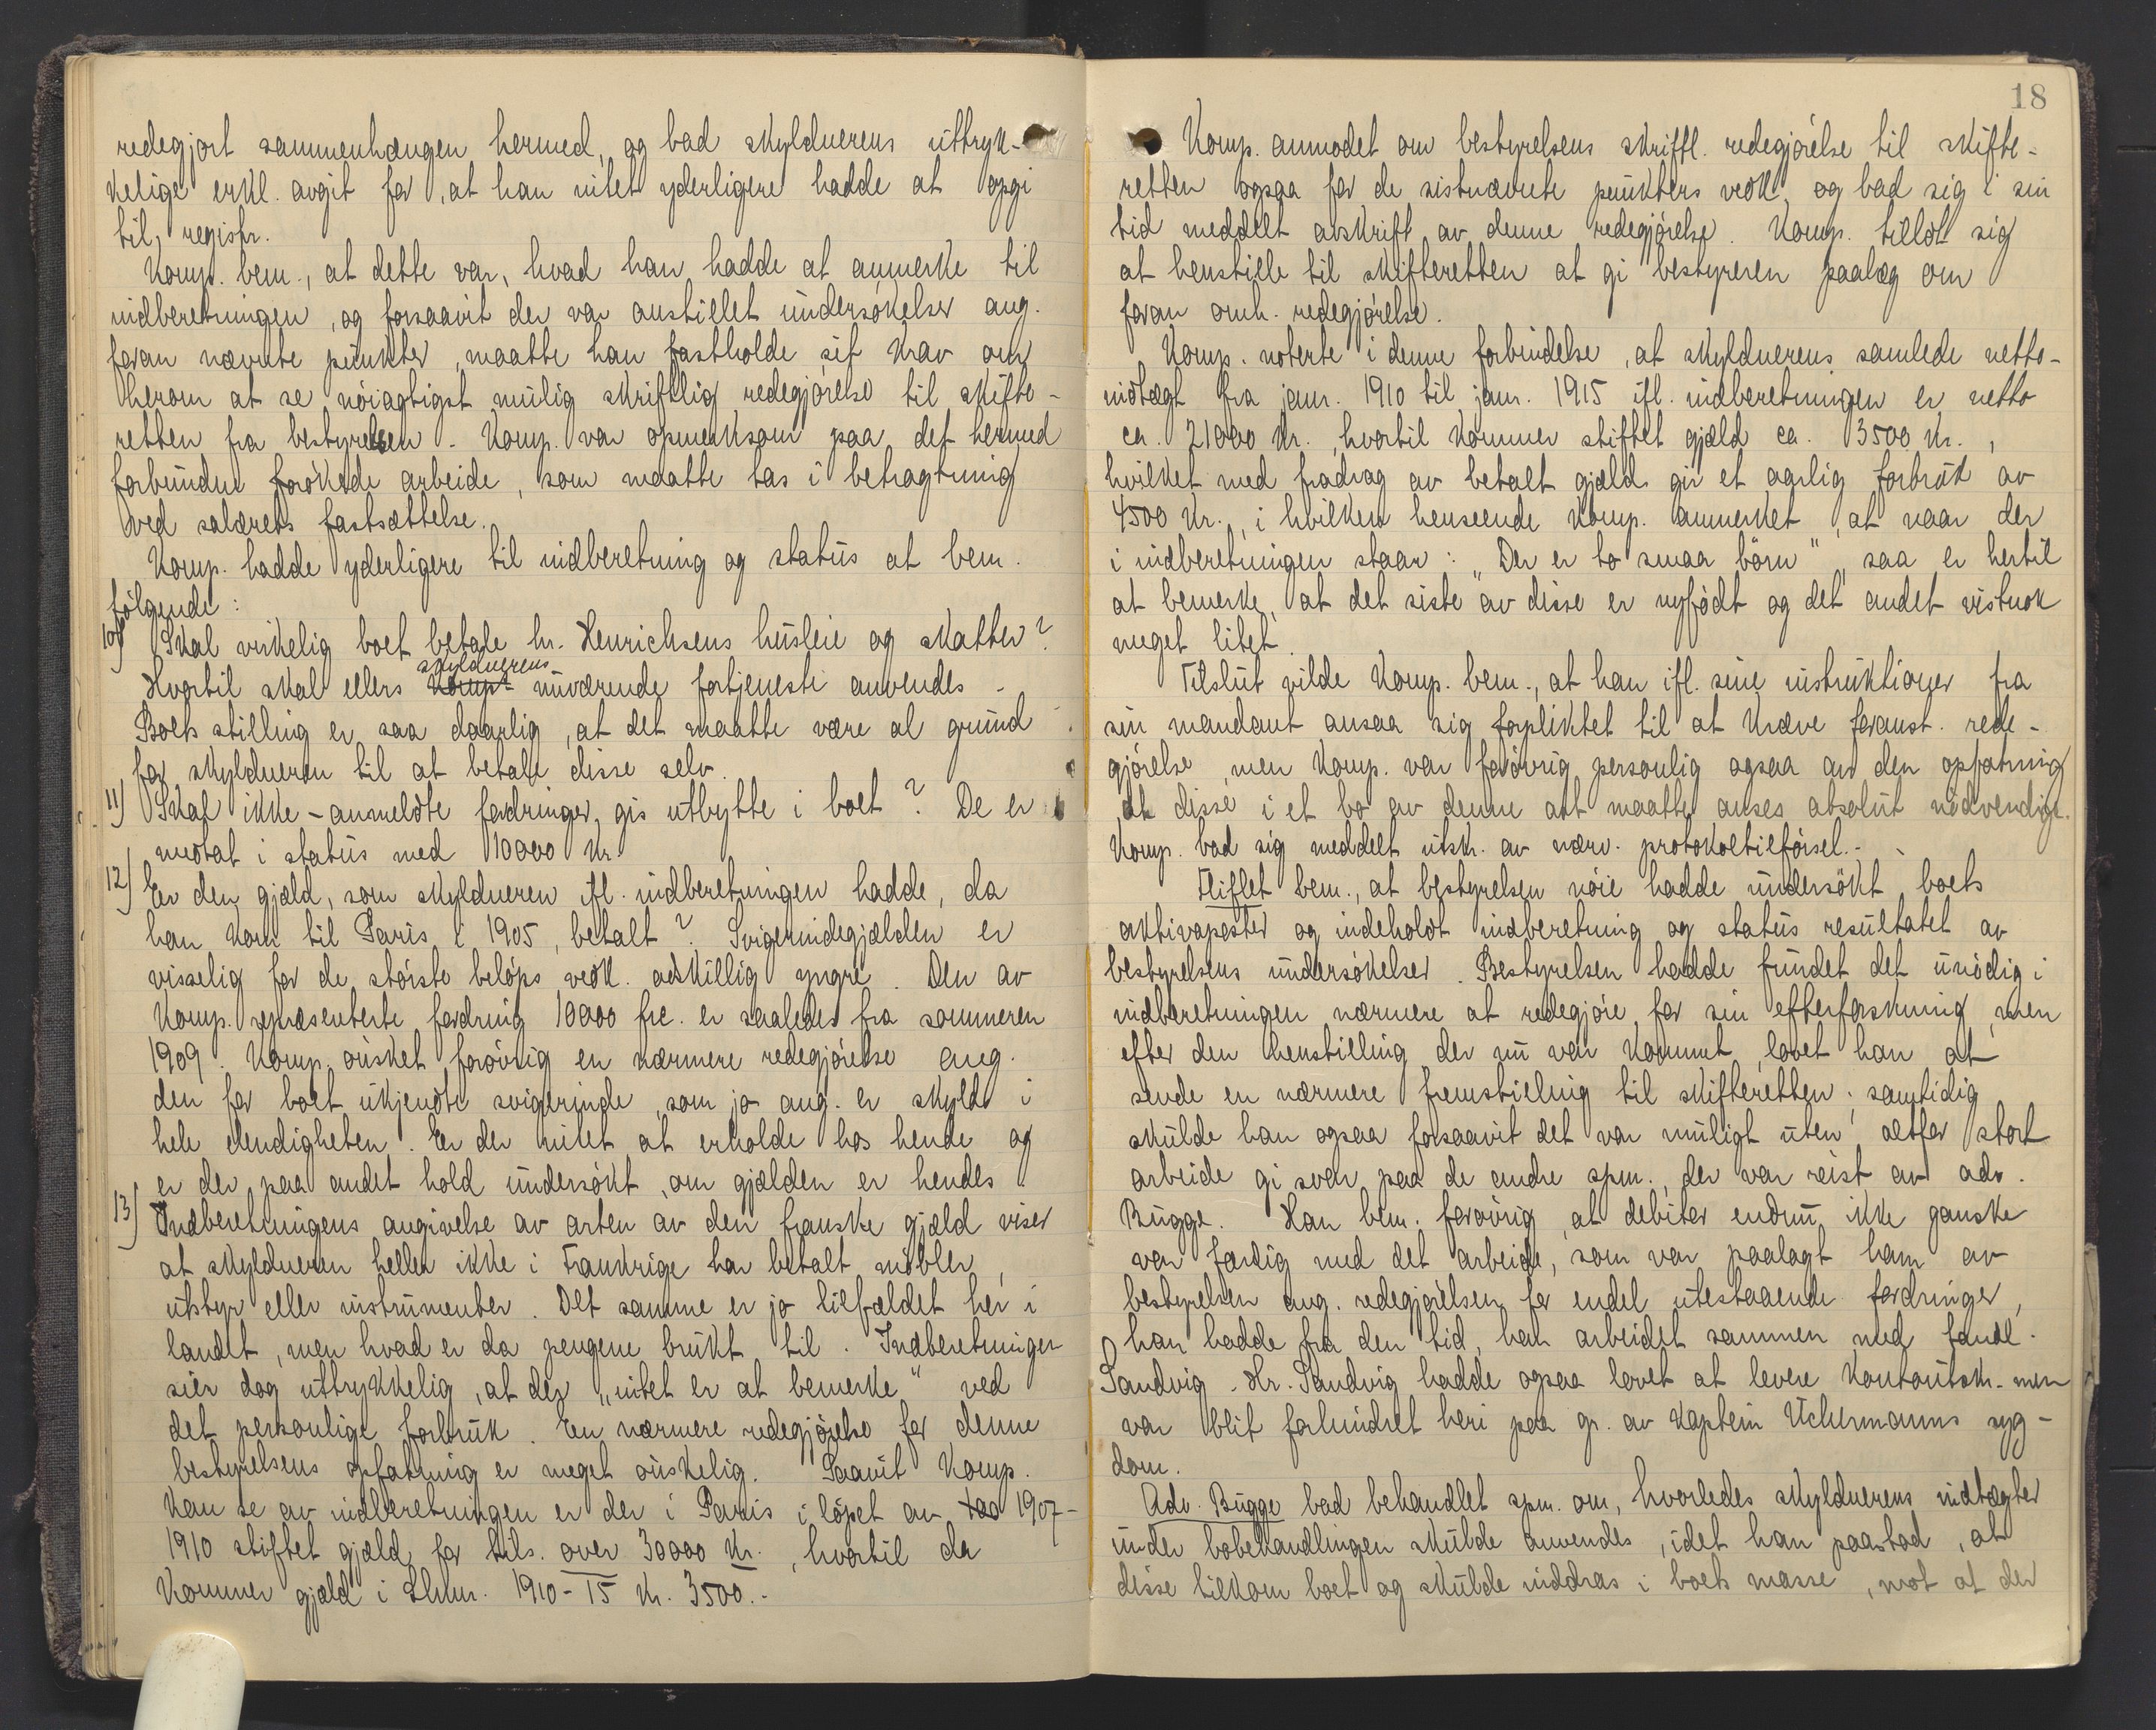 redegjort sammenhængen hermed, og bad skyldnerens uttryk-
kelige erkl. avgit for, at han intet yderligere hadde at opgi
til registr.
Komp. bem., at dette var, hvad han hadde at anmerke til
indberetningen, og forsaavit der var anstillet undersökelser ang.
foran nævnte punkter, maatte han fastholde sit krav om
herom at se nöiagtigst mulig skriftlig redegjörelse til skifte-
retten fra bestyrelsen. Komp. var opmerksom paa det hermed
forbundne forökede arbeide, som maatte tas i betragtning
ved salærets fastsættelse.
Komp. hadde yderligere til indberetning og status at bem.
fölgende:
10) Skal virkelig boet betale hr. Henrichsens husleie og skatter?
skyldnerens
Hvortil skal ellers Komp. nuværende fortjeneste anvendes.
Boets stilling er saa daarlig, at det maatte være al grund
for skyldneren til at betale disse selv.
11) Skal ikke-anmeldte fordringer gis utbytte i boet? De er
medtat i status med 10000 kr.
12) Er den gjæld, som skyldneren ifl. indberetningen hadde, da
han kom til Paris i 1905, betalt? Svigerindegjælden er
visselig for de störste belöps vedk. adskillig yngre. Den av
Komp. repræsenterte fordring 10000 frc. er saaledes fra sommeren
1909. Komp. önsket forövrig en nærmere redegjörelse ang.
den for boet ukjendte svigerinde, som jo ang. er skyld i
hele elendigheten. Er der intet at erholde hos hende og
er der paa andet hold undersökt, om gjælden er hendes.
13) Indberetningens angivelse av arten av den franske gjæld viser
at skyldneren heller ikke i Frankrige har betalt möbler,
utstyr eller instrumenter. Det samme er jo tilfældet her i
landet, men hvad er da pengene brukt til. Indberetningen
sier dog uttrykkelig, at der "intet er at bemerke" ved
det personlige forbruk. En nærmere redegjörelse for denne
bestyrelsens opfatning er meget önskelig. Saavit Komp.
kan se av indberetningen er der i Paris i löpet av 1907-
1910 stiftet gjæld for tils. over 30000 kr., hvortil da
kommer gjæld i 1910-15 kr. 3500.-
18
Komp. anmodet om bestyrelsens skriftl. redegjörelse til skifte-
retten ogsaa for de sistnævnte punkters vedk. og bad sig i sin
tid meddelt avskrift av denne redegjörelse. Komp. tillot sig
at henstille til skifteretten at gi bestyreren paalæg om
foran omh. redegjörelse.
Komp. noterte i denne forbindelse, at skyldnerens samlede netto-
indtægt fra janr. 1910 til janr. 1915 ifl. indberetningen er netto
ca. 21000 kr., hvortil kommer stiftet gjæld ca. 3500 kr.,
hvilket med fradrag av betalt gjæld gir et aarlig forbruk av
4500 kr., i hvilken henseende Komp. anmerket, at naar der
i indberetningen staar: "Der er to smaa börn", saa er hertil
at bemerke, at det siste av disse er nyfödt og det andet vistnok
meget litet.
Tilslut vilde Komp. bem., at han ifl. sine instruktioner fra
sin mandant ansaa sig forpliktet til at kræve foranst. rede-
gjörelse, men Komp. var forövrig personlig ogsaa av den opfatning
at disse i et bo av denne art maatte anses absolut nödvendige.
Komp. bad sig meddelt utskr. av nærv. protokoltilförsel.-
Fliflet bem., at bestyrelsen nöie hadde undersökt boets
aktivaposter og indeholdt indberetning og status resultatet av
bestyrelsens undersökelser. Bestyrelsen hadde fundet det unödig i
indberetningen nærmere at redegjöre for sin efterforskning, men
efter den henstilling der nu var kommet, lovet han at
sende en nærmere fremstilling til skifteretten; samtidig
skulde han ogsaa forsaavit det var muligt uten altfor stort
arbeide gi svar paa de andre spm., der var reist av adv.
Bugge. Han bem. forövrig, at debitor endnu ikke ganske
var færdig med det arbeide, som var paalagt ham av
bestyrelsen ang. redegjörelsen for endel utestaaende fordringer,
han hadde fra den tid, han arbeidet sammen med tandl.
Sandvig. Hr. Sandvig hadde ogsaa lovet at levere kontoutskr. men
var blit forhindret heri paa gr. av kaptein Uchermanns syg-
dom.
Adv. Bugge bad behandlet spm. om, hvorledes skyldnerens indtægter
under bobehandlingen skulde anvendes, idet han paastod, at
disse tilkom boet og skulde inddras i boets masse, mot at der